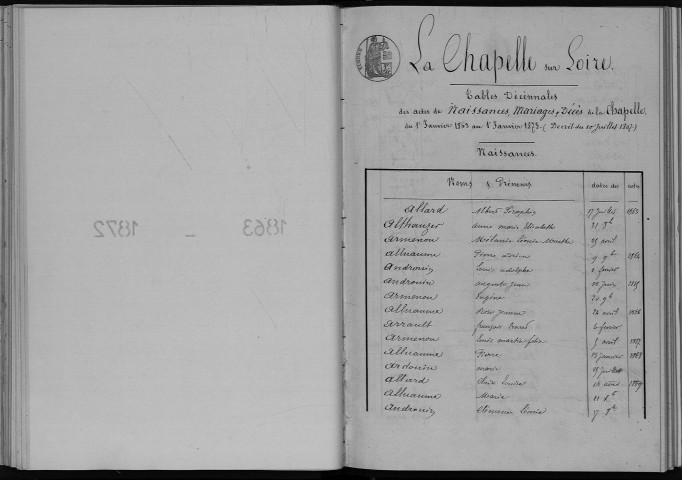 1863 - 1872
La Chapelle sur Loire.
Tables Décennales
des actes de Naissances, Mariages, Décès de la Chapelle
du 1er Janvier 1863 au 1er Janvier 1873 (Décret du 20 Juillet 1807)
Naissances.
Noms & Prénoms dates des actes
Allard Albert Séraphin 17 Juillet 1863
Althauser anne marie Elisabeth 21
Armenou Mélanie Léonie 25 août
Alleaume Pierre 9 9bre 1864
Androuin Louis adolphe 2 février
Androuin auguste 1865
Armenou Eugène 20 9bre
Alleaume Rose jeanne 24 août 1866
Arrault françois 6 février
Armenou Louis martin felix 5 avril 1867
Alleaume Pierre 15 janvier 1868
Ardouin marie 25 juillet
Allard Louise 1869
Alleaume Marie 11
Androuin Clémence Léonie 7